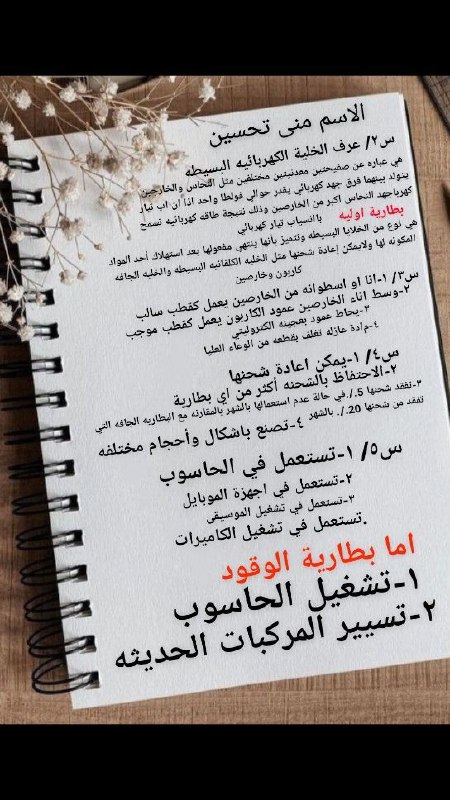 الاسم منى تحسين
س٢/ عرف الخلية الكهربائيه البسيطه
هي عباره عن صفيحتين معدنيتين مختلفتين مثل النحاس والخارصين
يتولد بينهما فرق جهد كهربائي يقدر حوالي فولطا واحد اذا أن اب تيار
كهرباجهد النحاس اكبر من الخارصين وذلك نتيجة طاقه كهربائيه تسمح
بطارية اوليه باانسياب تيار كهربائي
هي نوع من الخلايا البسيطه وتتميز بأنها ينتهي مفعولها بعد استهلاك أحد المواد
المكونه لها ولايمكن إعادة شحنها مثل الخليه الكلفانيه البسيطه والخليه الجافه
كاربون وخارصين
س٣/ ١-انا او اسطوانه من الخارصين يعمل كقطب سالب
٢-وسط اناء الخارصين عمود الكاربون يعمل كقطب موجب
٣-يحاط عمود بعجينه الكتروليتي
٤-م/دة عازله تغلف بقطعه من الوعاء العليا
س٤/ ١-يمكن اعادة شحنها
٢-الاحتفاظ بالشحنه أكثر من اي بطارية
٣-تفقد شحنها 5./.في حالة عدم استعمالها بالشهر بالمقارنه مع البطاريه الجافه التي
تفقد من شحنها 20./. بالشهر ٤-تصنع باشكال وأحجام مختلفه
س٥/ ١-تستعمل في الحاسوب
٢-تستعمل في اجهزة الموبايل
٣-تستعمل في تشغيل الموسيقى
.تستعمل في تشغيل الكاميرات
اما بطارية الوقود
١-تشغيل الحاسوب
٢-تسيير المركبات الحديثه